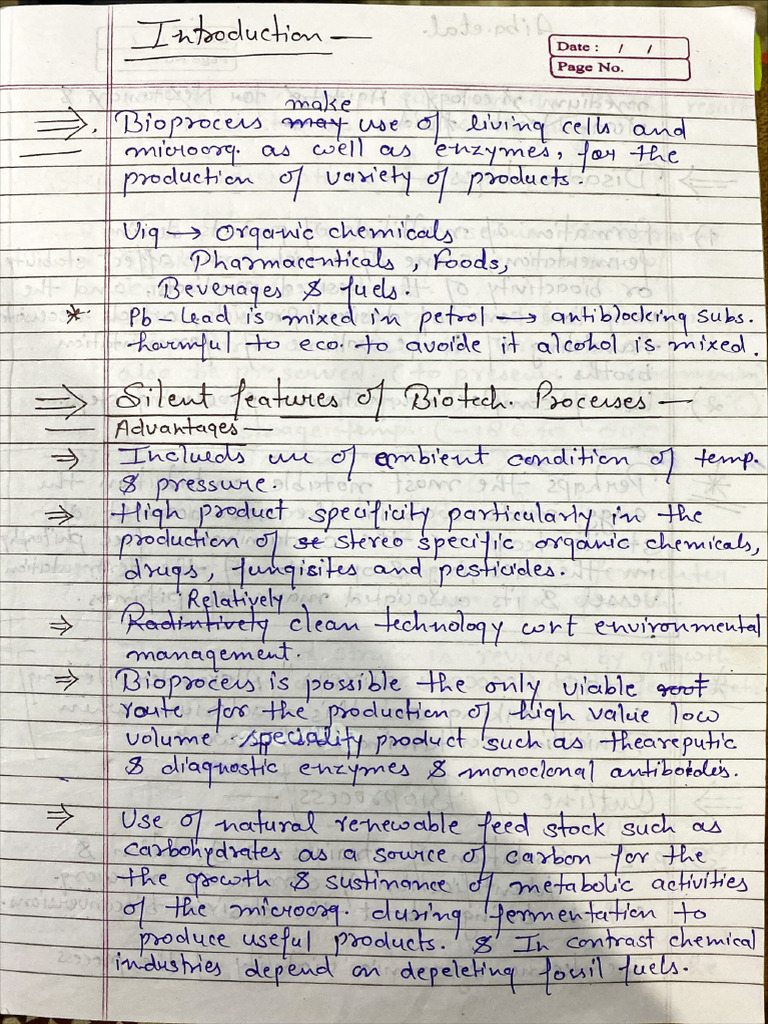 Introduction —
Date : / /
Page No.
make
⇒. Bioprocess may use of living cells and
microorg. as well as enzymes, for the
production of variety of products.
Viq → Organic chemicals
Pharmaceuticals, Foods,
Beverages & fuels.
* Pb – Lead is mixed in petrol → antiblocking subs.
harmful to eco. to avoide it alcohol is mixed.
⇒ Silent features of Biotech. Processes —
Advantages —
→ Inclueds use of ambient condition of temp.
& pressure.
⇒ High product specificity particularly in the
production of se stereo specific organic chemicals,
drugs, fungisites and pesticides.
Relatively
⇒ Radintively clean technology wrt environmental
management.
⇒ Bioprocess is possible the only viable root
route for the production of high value low
volume speciality product such as theareputic
& diagnostic enzymes & monoclonal antiboides.
⇒ Use of natural renewable feed stock such as
carbohydrates as a source of carbon for the
the growth & sustinance of metabolic activities
of the microorg. during fermentation to
produce useful products. & In contrast chemical
industries depend on depeleting fossil fuels.